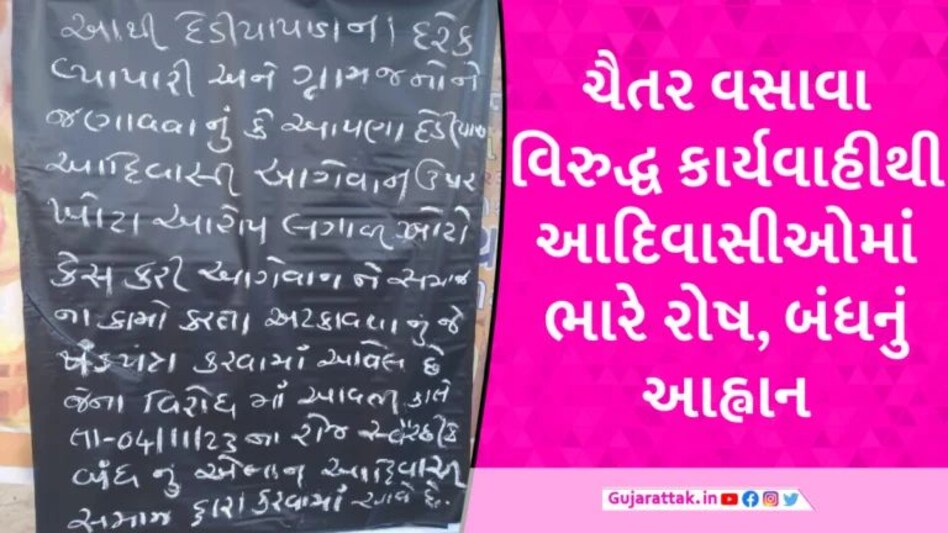 આથી દેડીયાપાડાના દરેક
વ્યાપારી અને ગ્રામજનોને
જણાવવાનું કે આપણા
આદિવાસી આગેવાન ઉપર
ખોટા આરોપ લગાવી ખોટો
કેસ કરી આગેવાન ને સમાજ
ના કામો કરતા અટકાવવાનું જે
કરવામાં આવેલ છે
જેના વિરોધ માં આવતી કાલે
તા-04/11/23 ના રોજ
બંધ નું એલાન આદિવાસી
સમાજ દ્વારા કરવામાં આવે છે.
ચૈતર વસાવા
વિરુદ્ધ કાર્યવાહીથી
આદિવાસીઓમાં
ભારે રોષ, બંધનું
આહ્વાન
Gujarattak.in